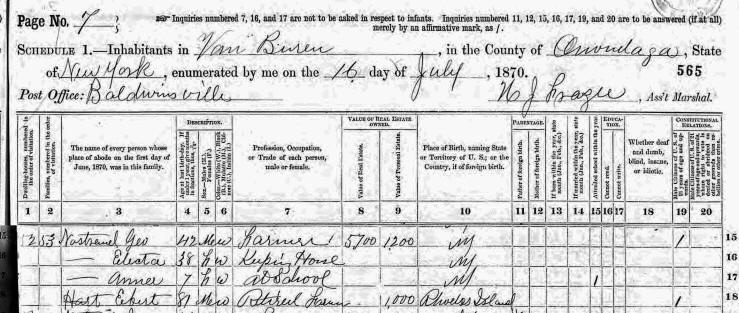 Page No. 7
Inquiries numbered 7, 16, and 17 are not to be asked in respect to infants. Inquiries numbered 11, 12, 15, 16, 17, 19, and 20 are to be answered (if at all)
merely by an affirmative mark, as /.
SCHEDULE 1.—Inhabitants in Van Buren, in the County of Onondaga, State
of New York, enumerated by me on the 16 day of July, 1870.
565
Post Office: Baldwinsville
Ass't Marshal.
Dwelling-houses, numbered in the order of visitation.
Families, numbered in the order of visitation.
The name of every person whose place of abode on the first day of June, 1870, was in this family.
DESCRIPTION.
Profession, Occupation, or Trade of each person, male or female.
VALUE OF REAL ESTATE OWNED.
Value of Real Estate.
Value of Personal Estate.
Place of Birth, naming State or Territory of U. S.; or the Country, if of foreign birth.
PARENTAGE.
Father of foreign birth.
Mother of foreign birth.
If born within the year, state month (Jan., Feb., &c.)
If married within the year, state month (Jan., Feb., &c.)
Attended school within the year.
EDUCATION.
Cannot read.
Cannot write.
Whether deaf and dumb, blind, insane, or idiotic.
CONSTITUTIONAL RELATIONS.
1 2 3 4 5 6 7 8 9 10 11 12 13 14 15 16 17 18 19 20
15 Geo 42 M W Farmer 5700 1200 NY / 15
16 — Electa 38 F W Keeping House NY 16
17 — 7 F W At School NY 1 17
Hart 81 M W 1,000 Rhodes Island / 18